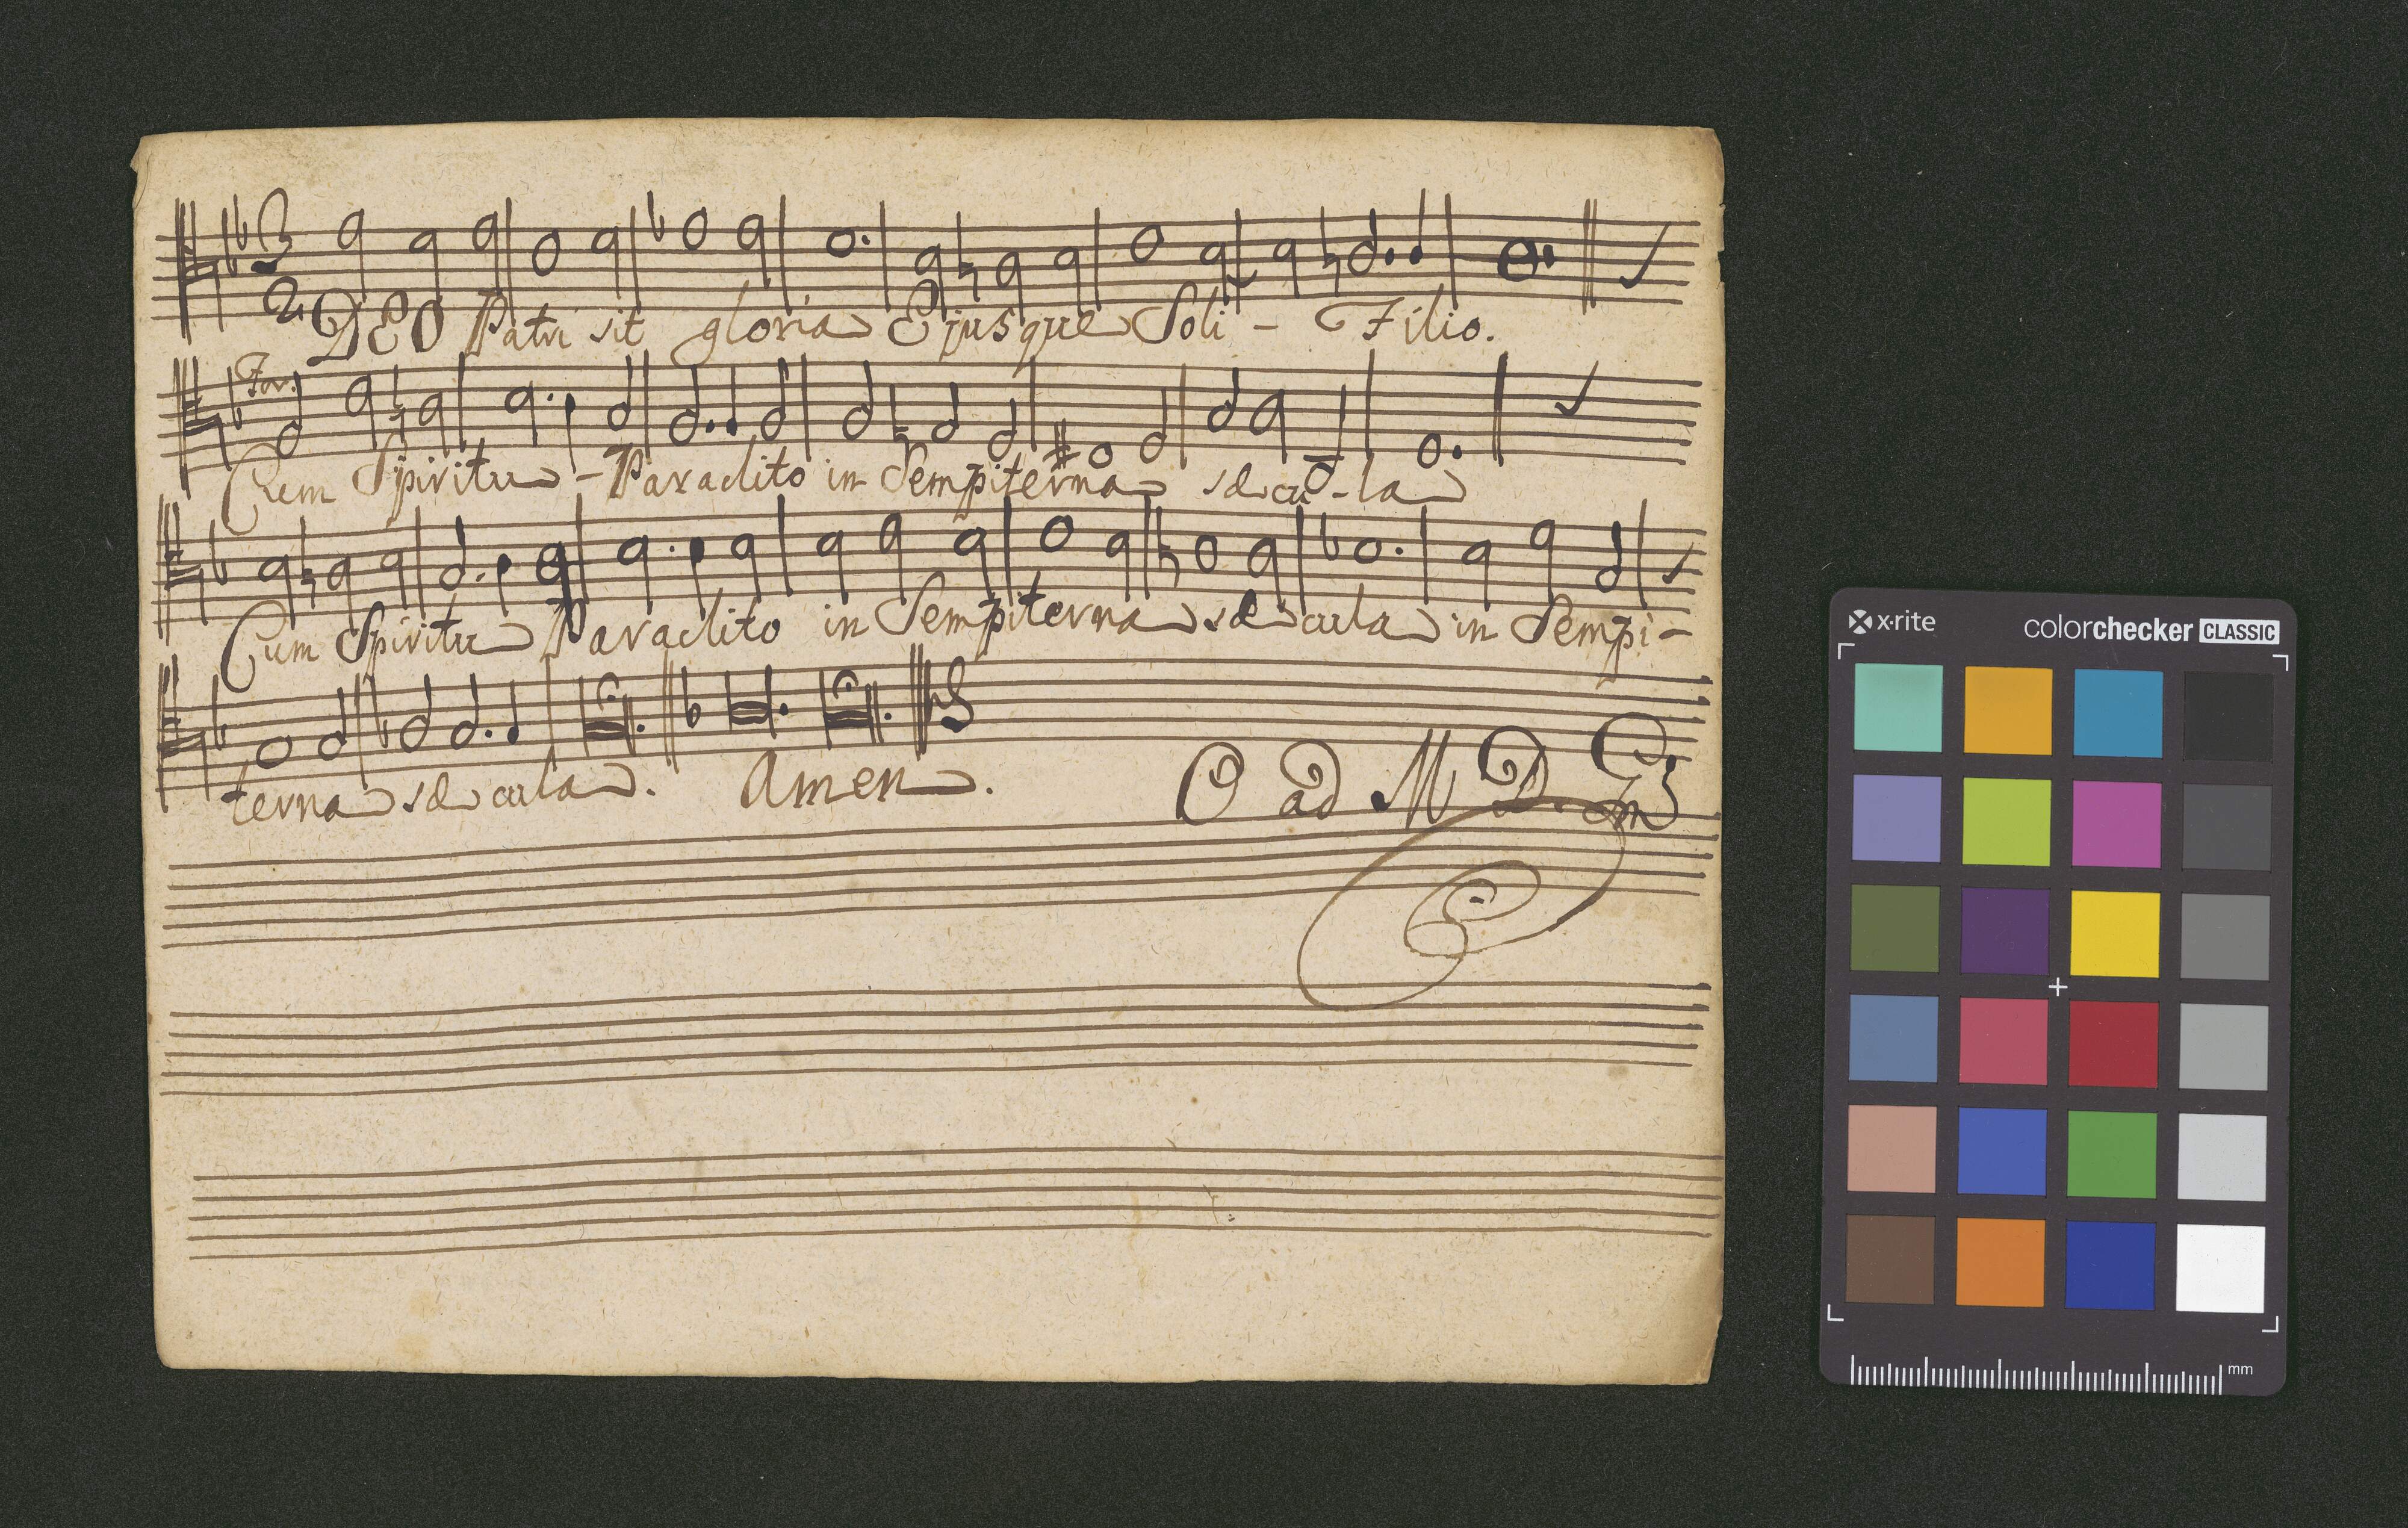 DEO Patri sit gloria Ejusque Soli - Filio.
For.
Cum Spiritu - Paraclito in Sempiterna sæcu-la
Cum Spiritu Paraclito in Sempiterna sæcula in Sempi-
terna sæcula. Amen.
O ad M D. G
x·rite
colorchecker CLASSIC
mm